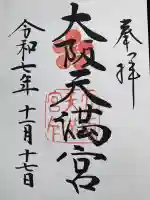 奉拝
大阪天満宮
令和七年十一月十七日